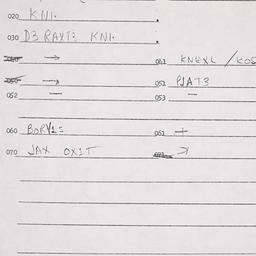 020 KNI.
030 D3 RAYT3 KNI.
→ 041 KNEXL / KOS
→ 051 PJAT3
052 — 053 —
060 BORY1= 061 +
070 JAX OX1T →